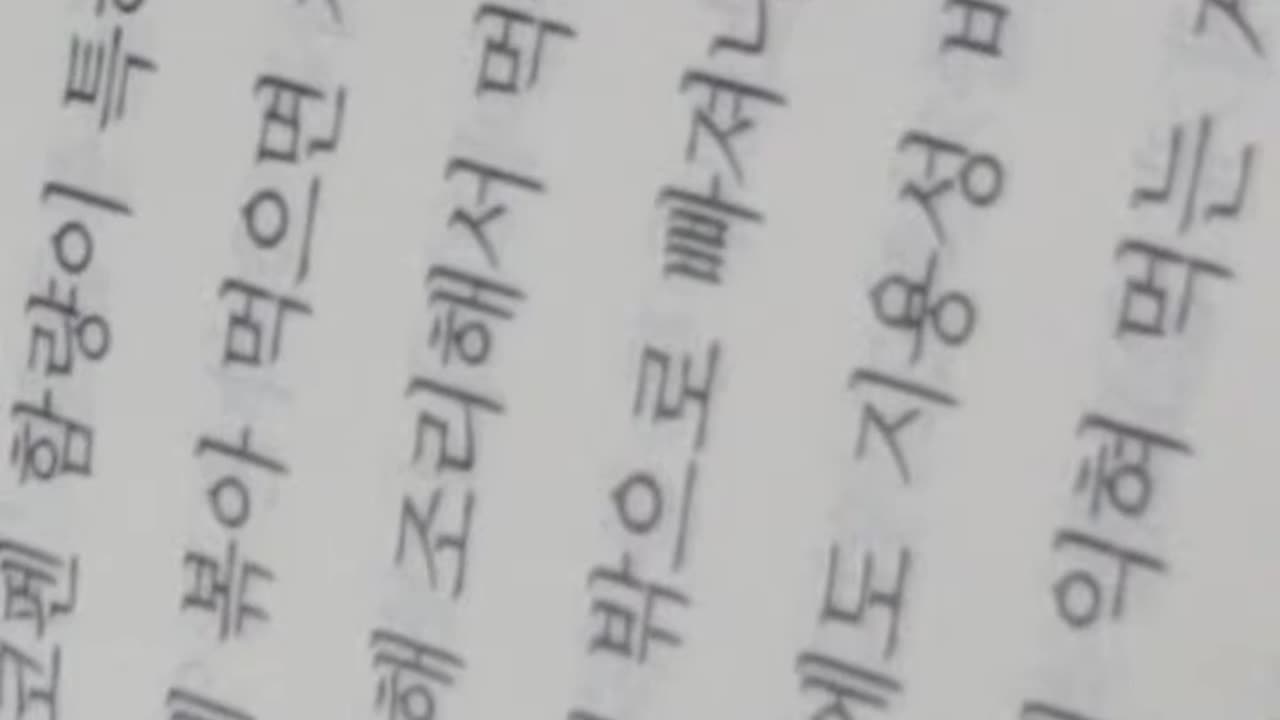 코펜 함량이 특
볶아 먹으면
해 조리해서 먹
밖으로 빠져나
에도 지용성
익혀 먹는